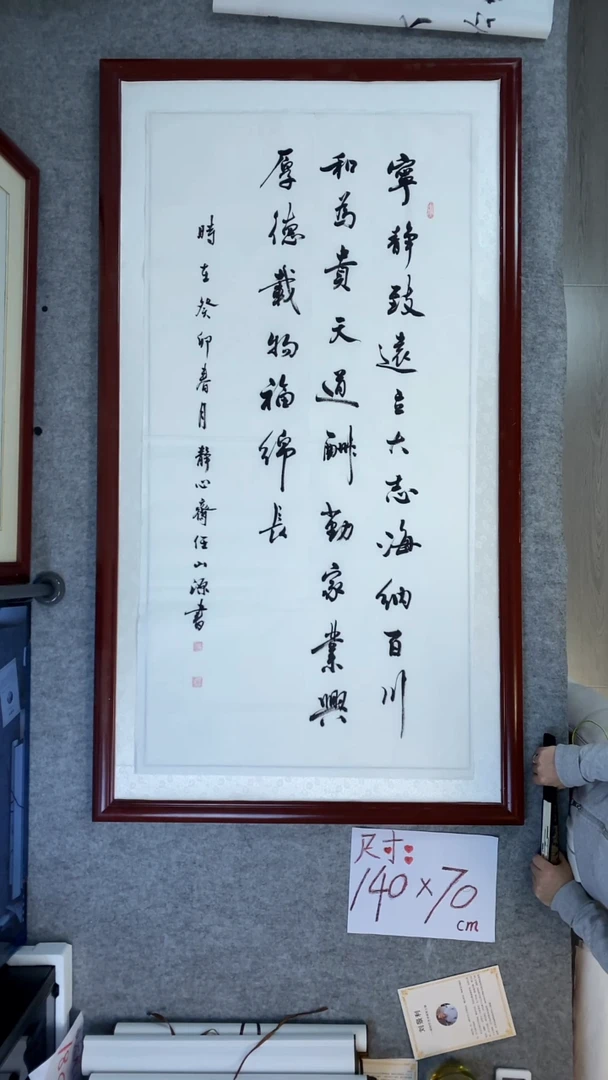 寧靜致遠立大志海納百川
和為貴天道酬勤家業興
厚德載物福綿長
時在癸卯春月靜心齋任山源書
尺寸:
140×70
cm